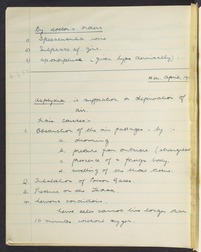 By doctor's orders
1) Sal volatile
2)
3) Apomorphine - given hypodermically.
April, 19
Asphyxia is suffocation or deprivation of
air.
Main causes -
1. Obstruction of the air passages - by -
a. drowning
b. pressure from outside (strangled
c. presence of a foreign body.
d. swelling of the throat tissue.
2. Inhalation of Poison Gases
3. Pressure on the Throat
4. nervous conditions.
Nerve cells cannot live longer than
10 minutes without oxygen.